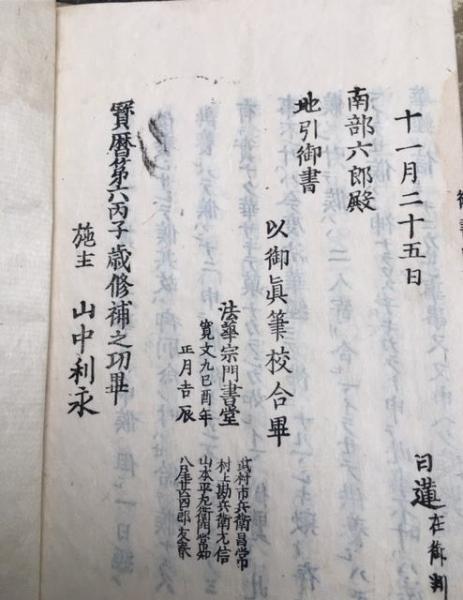 十一月二十五日
日蓮在御判
南部六郎殿
地引御書
以御眞筆校合畢
法華宗門書堂
寛文九己酉年
正月吉辰
武村市兵衛昌常
村上勘兵衛元信
山本平左衛門常知
八尾甚四郎友春
寶暦第六丙子歳修補之功畢
施主 山中利永